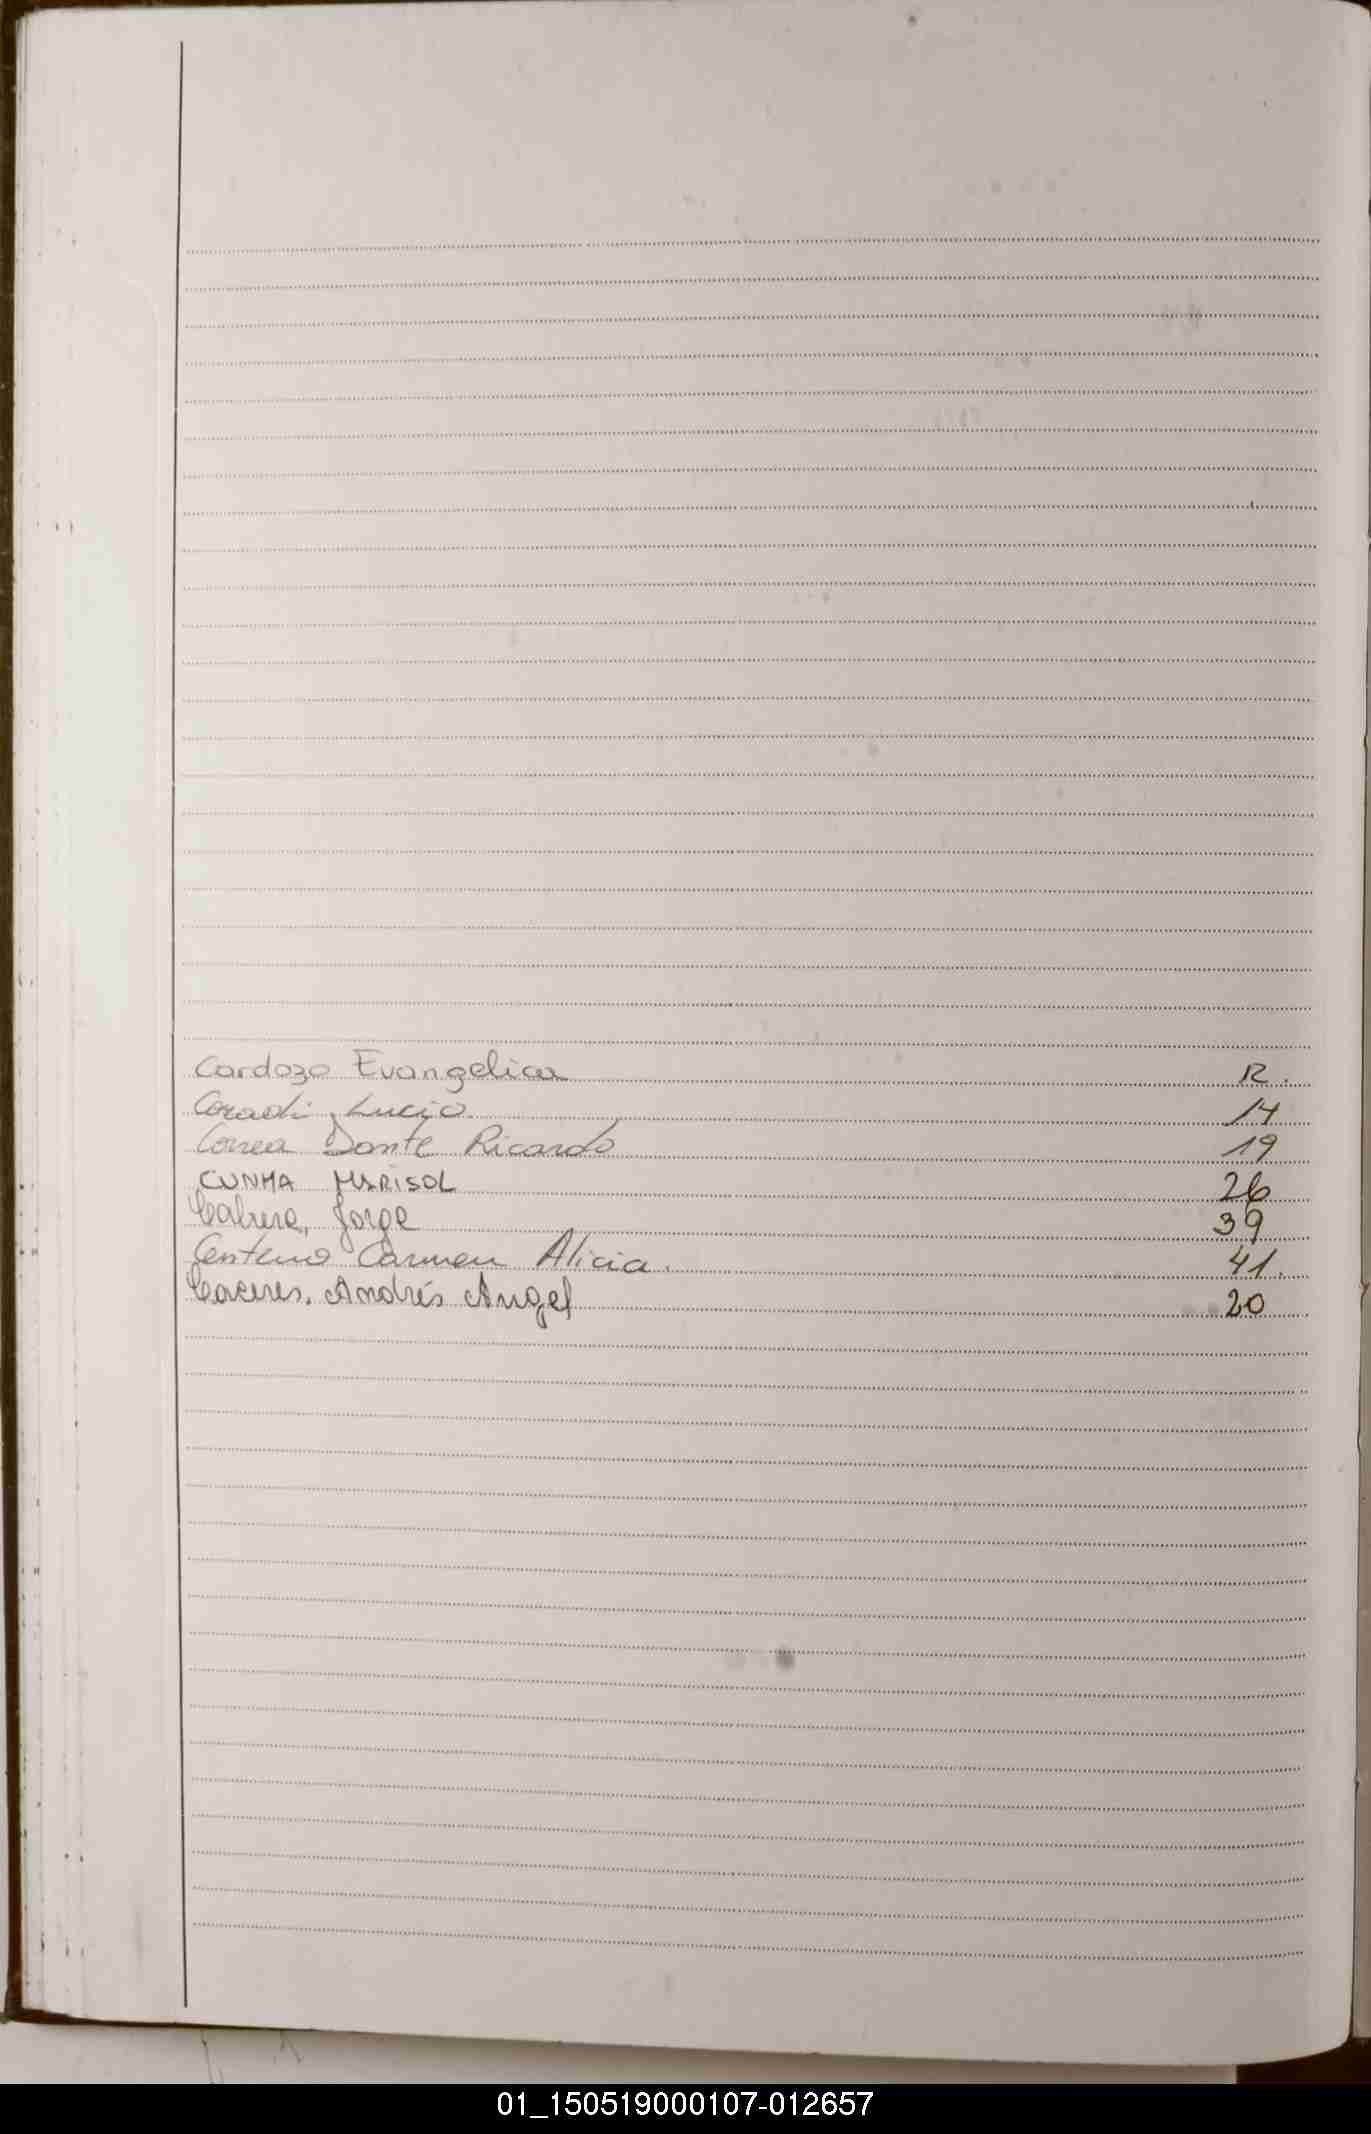 Cardozo Evangelica 12.
Coradi, Lucio 14
Correa Dante Ricardo 19
CUNHA MARISOL 26
Cabrera, Jorge 39
Centeno Carmen Alicia. 41.
Caceres, Andrés Angel 20
01_150519000107-012657